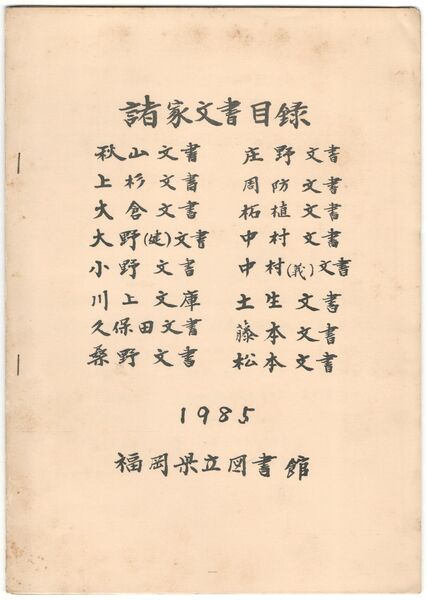 諸家文書目録
秋山文書 庄野文書
上杉文書 周防文書
大倉文書 柘植文書
大野(健)文書 中村文書
小野文書 中村(義)文書
川上文庫 土生文書
久保田文書 藤本文書
桑野文書 松本文書
1985
福岡県立図書館